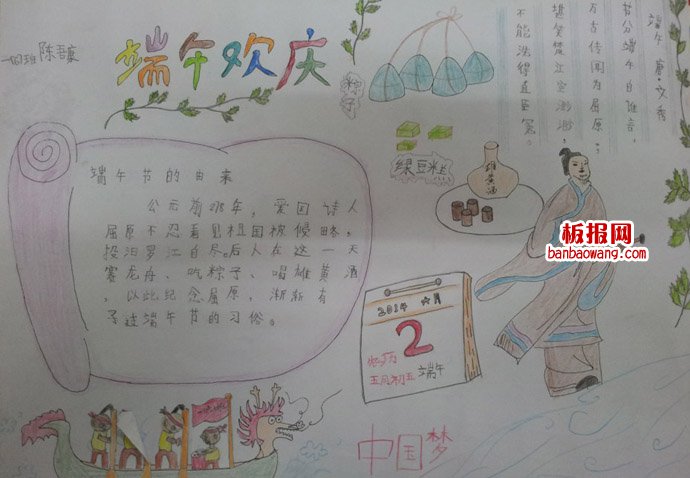 端午欢庆
粽子
端午 唐·文秀
节分端午自谁言,
万古传闻为屈原。
堪笑楚江空渺渺,
不能洗得直臣冤。
绿豆糕
雄黄酒
端午节的由来
公元前278年,爱国诗人
屈原不忍看见祖国被侵略,
投汨罗江自尽。后人在这一天
赛龙舟、吃粽子、喝雄黄酒
,以此纪念屈原,渐渐有
了过端午节的习俗。
2014 六月
2
农历
五月初五 端午
中国梦
板报网
banbaowang.com